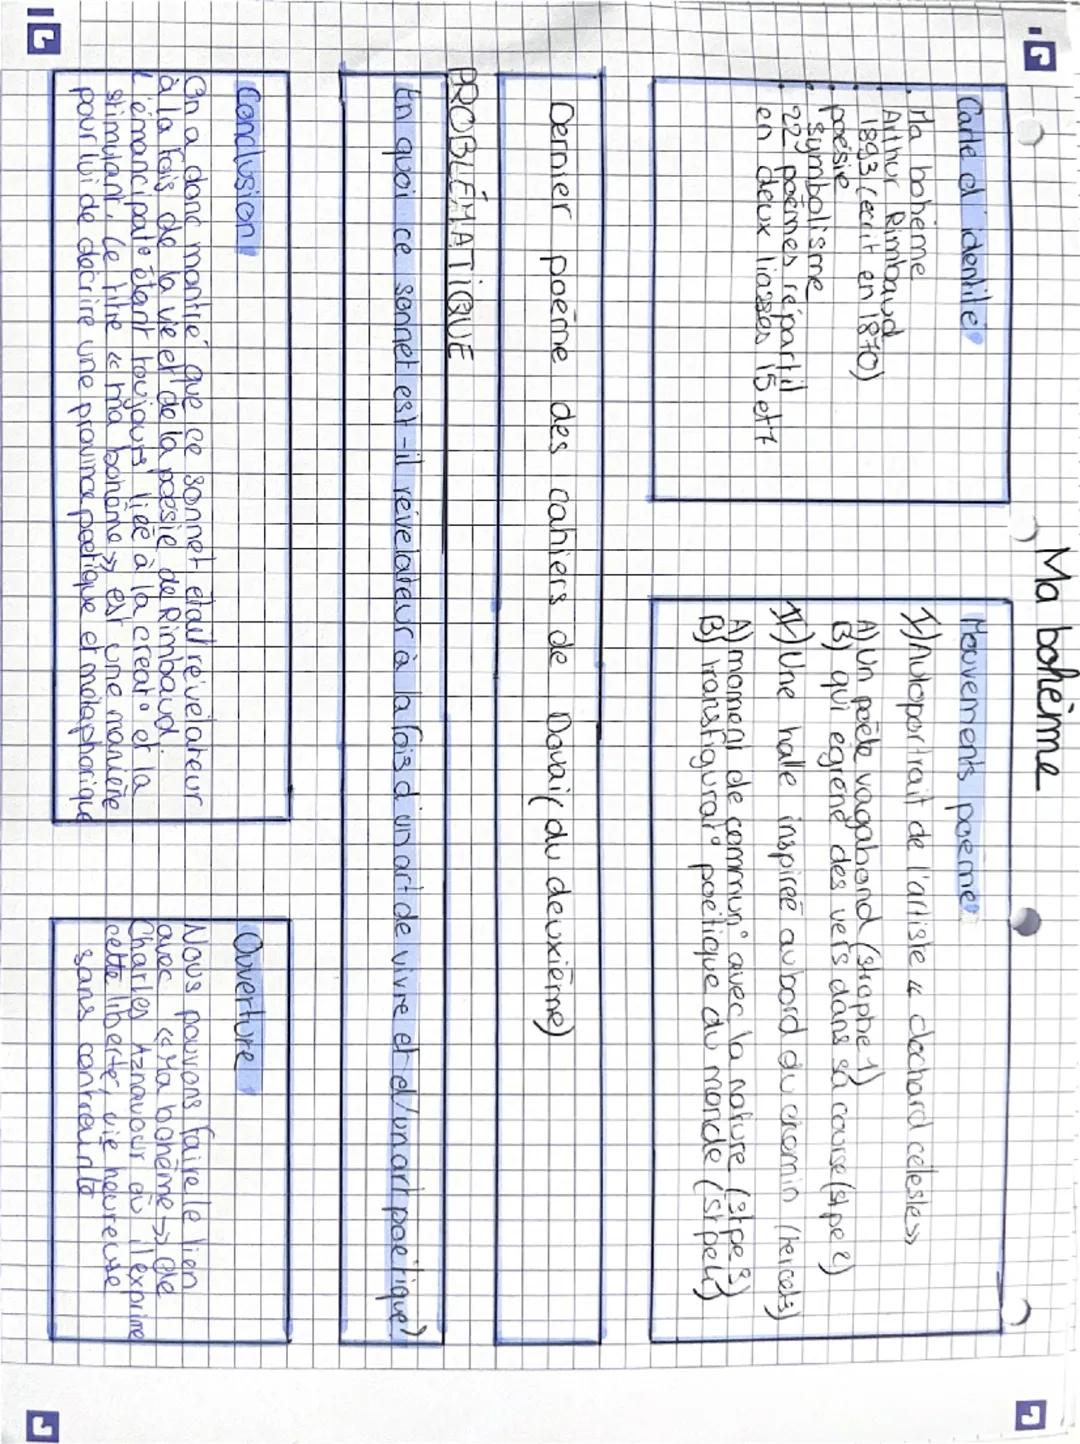 Ma bohème
Carte d'identité
. Ma bohème
. Arthur Rimbaud
. 1893 (écrit en 1870)
. poésie
. symbolisme
. 22 poèmes réparti
en deux liasses 15 et 7
Mouvements poeme
I) Autoportrait de l'artiste « clochard céleste »
A) Un poète vagabond (strophe 1)
B) qui égrène des vers dans sa course (stpe 2)
II) Une halle inspirée au bord du chemin (tercets)
A) moment de commun° avec la nature (stpe 3)
B) transfigurat° poétique du monde (stpe 4)
Dernier poème des cahiers de Douai (du deuxième)
PROBLÉMATIQUE
En quoi ce sonnet est-il révélateur à la fois d'un art de vivre et d'un art poétique?
Conclusion
On a donc montré que ce sonnet était révélateur
à la fois de la vie et de la poésie de Rimbaud.
L'émancipat° étant toujours liée à la créat° et la
stimulant. Le titre « ma bohème » est une manière
pour lui de décrire une province poétique et métaphorique
Ouverture
Nous pouvons faire le lien
avec « Ma bohème » de
Charles Aznavour où il exprime
cette liberté, vie heureuse
sans contrainte